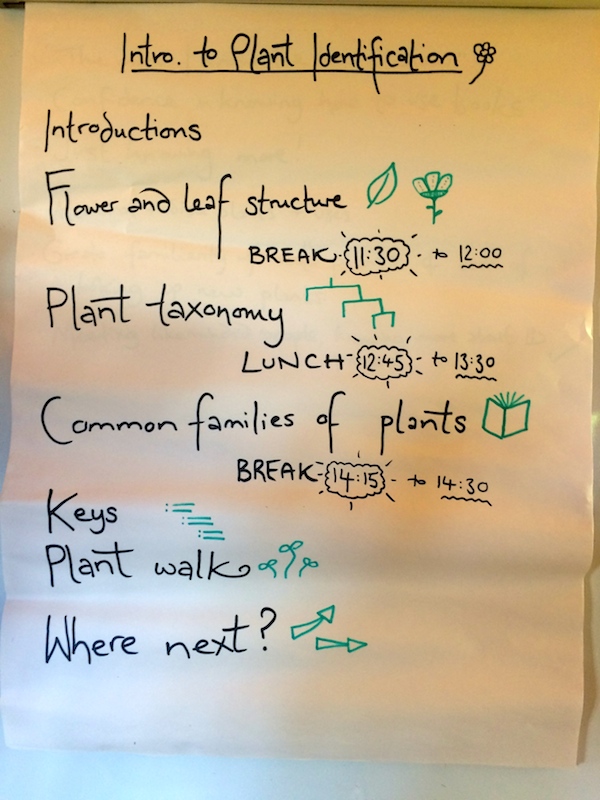 Intro. to Plant Identification
Introductions
Flower and leaf structure
BREAK 11:30 - to 12:00
Plant taxonomy
LUNCH - 12:45 - to 13:30
Common families of plants
BREAK - 14:15 - to 14:30
Keys
Plant walk
Where next?